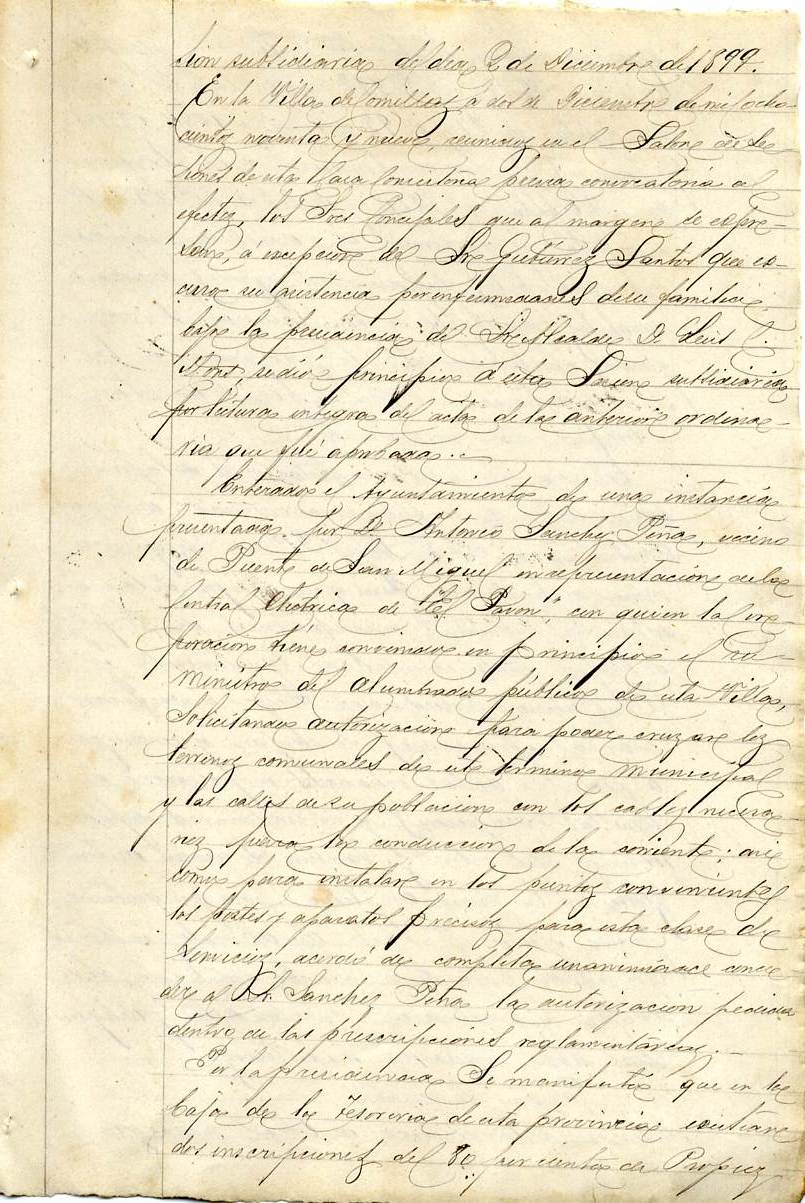 sion subsidiaria del dia 2 de Diciembre de 1899.
En la Villa de Comillas á dos de Diciembre de mil ocho-
cientos noventa y nueve, reunidos en el Salon de Se-
siones de esta Casa Consistorial previa convocatoria al
efecto, los Sres Concejales que al margen se expre-
san, á excepcion del Sr. Gutierrez Santos que es-
cusó su asistencia por enfermedades de su familia,
bajo la presidencia del Sr. Alcalde D. Luis
se dió principio á esta Sesion subsidiaria
por lectura integra del acta de la anterior ordina-
ria que fué aprobada.
Enterado el Ayuntamiento de una instancia
presentada por D. Antonio Sanchez Peña, vecino
de Puente de San Miguel en representacion de la
Central eléctrica de "El Pavon", con quien la cor-
poracion tiene convenido en principio el su-
ministro del alumbrado público de esta Villa,
solicitando autorizacion para poder cruzar los
terrenos comunales de este término municipal
y las calles de su poblacion con los cables necesa-
rios para la conduccion de la corriente; asi
como para instalar en los puntos convenientes
los postes y aparatos precisos para esta clase de
servicios, acordó de completa unanimidad conce-
der al Sr. Sanchez Peña la autorizacion pedida
dentro de las prescripciones reglamentarias.
Por la presidencia se manifestó que en la
Caja de la Tesoreria de esta provincia existian
dos inscripciones del 80 por ciento de Propios